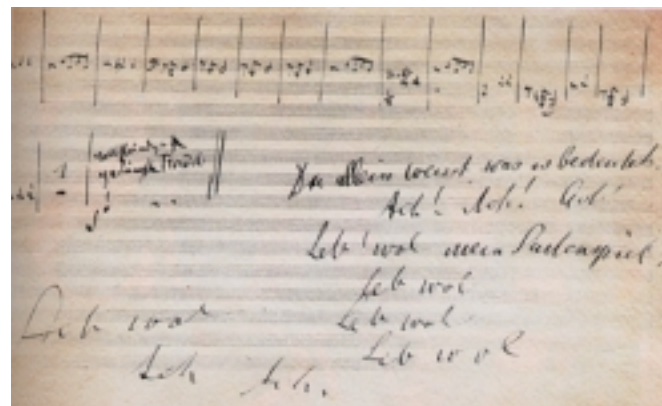 Du allein weisst was es bedeutet.
Ach! Ach! Ach!
Leb' wol mein Saitenspiel
Leb wol
Leb wol
Leb wol
Leb wol
Ach Ach.